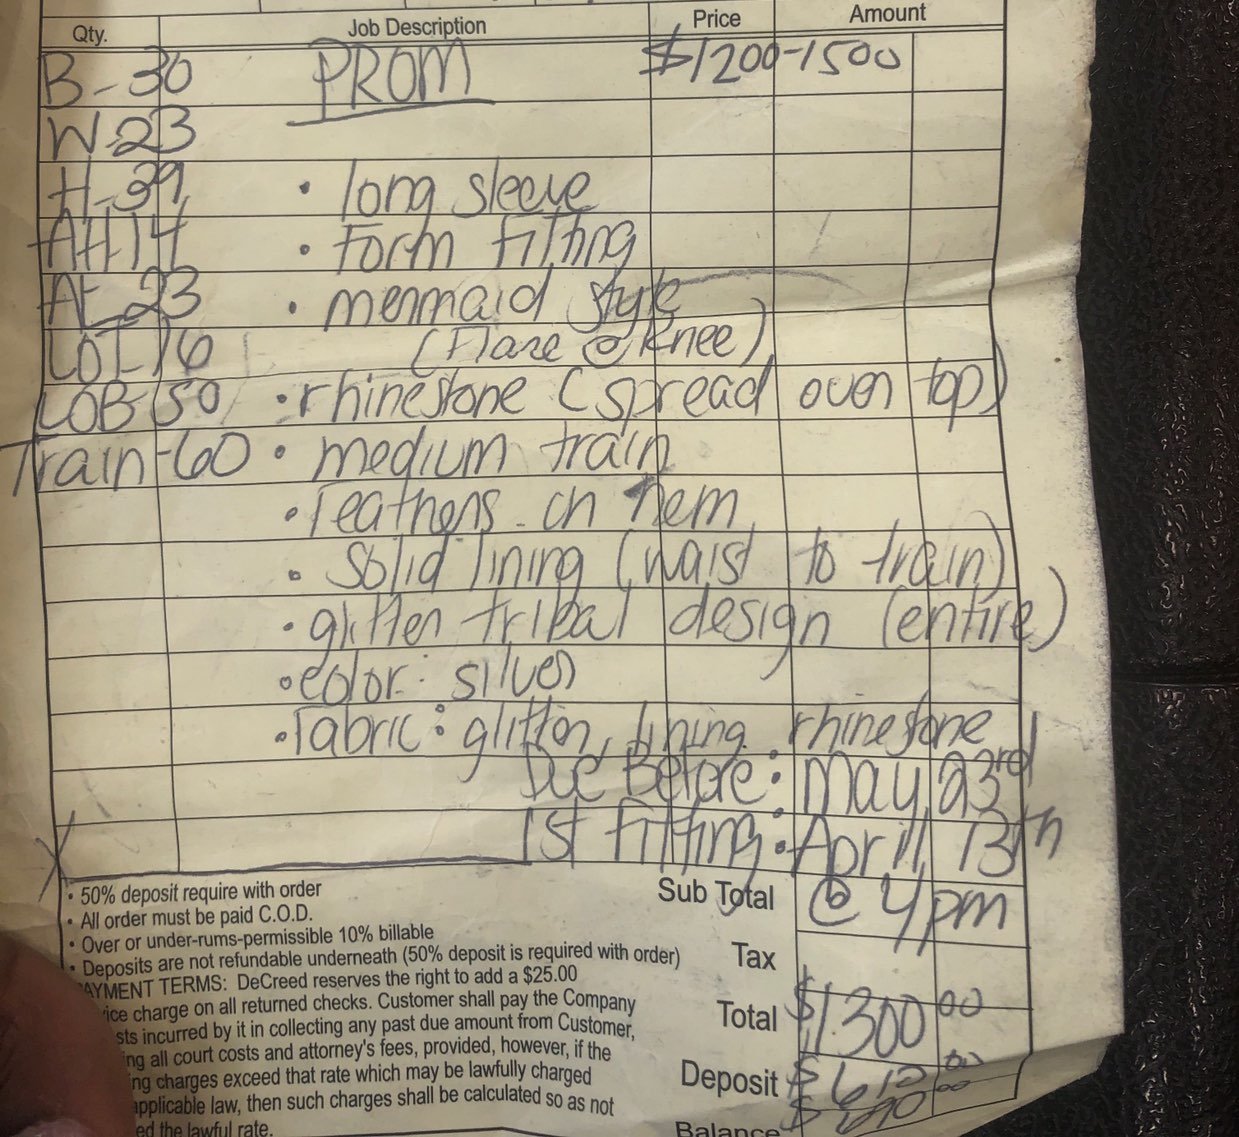 Qty. Job Description Price Amount
B-30 PROM $1200-1500
W-23
H-39 • long sleeve
AH14 • form fitting
AL-23 • mermaid style
LOT 16 (Flare @ Knee)
LOB 50 • rhinestone (spread over top)
Train-60 • medium train
• feathers on hem
• solid lining (waist to train)
• glitter tribal design (entire)
• color: silver
• fabric: glitter, lining, rhinestone
Due Before: May 23rd
1st fitting: April 13th
X
• 50% deposit require with order
• All order must be paid C.O.D.
• Over or under-rums-permissible 10% billable
• Deposits are not refundable underneath (50% deposit is required with order)
AYMENT TERMS: DeCreed reserves the right to add a $25.00
ice charge on all returned checks. Customer shall pay the Company
sts incurred by it in collecting any past due amount from Customer,
ing all court costs and attorney's fees, provided, however, if the
ng charges exceed that rate which may be lawfully charged
applicable law, then such charges shall be calculated so as not
ed the lawful rate.
Sub Total @ 4pm
Tax
Total $1300 00
Deposit $610 00
Balance $690 00